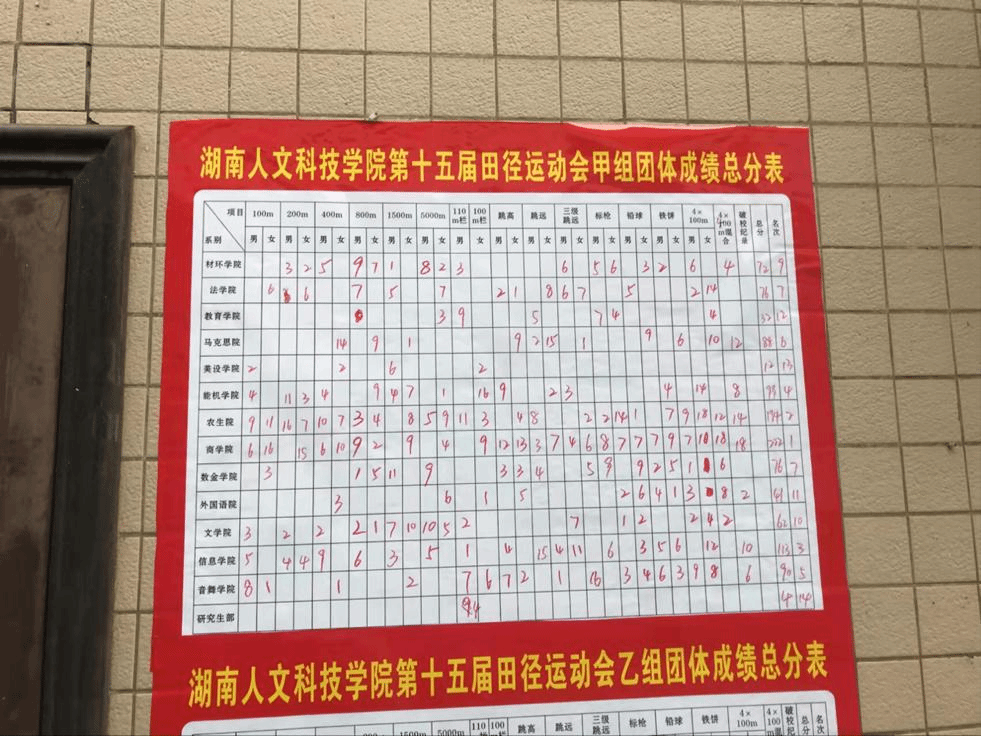 湖南人文科技学院第十五届田径运动会甲组团体成绩总分表
项目 100m 200m 400m 800m 1500m 5000m 110m栏 100m栏 跳高 跳远 三级跳远 标枪 铅球 铁饼 4×100m 4×400m混合 破校纪录 总分 名次
系别 男 女 男 女 男 女 男 女 男 女 男 女 男 女 男 女 男 女 男 女 男 女 男 女 男 女 男 女
材环学院 3 2 5 9 7 1 8 2 3 6 5 6 3 2 6 4 72 9
法学院 6 6 7 5 7 2 1 8 6 7 5 2 14 76 7
教育学院 3 9 5 7 4 4 32 12
马克思院 14 9 1 9 2 15 1 9 6 10 12 88 6
美设学院 2 2 6 2 12 13
能机学院 4 11 3 4 9 4 7 1 16 9 2 3 4 14 8 99 4
农生院 9 11 16 7 10 7 3 4 8 5 9 11 3 4 8 2 2 14 1 7 9 18 12 14 194 2
商学院 6 16 15 6 10 9 2 9 4 9 12 13 3 7 4 6 8 7 7 7 9 7 18 18 202 1
数金学院 3 1 5 11 9 3 3 4 5 9 9 2 5 1 6 76 7
外国语院 3 6 1 5 2 6 4 1 3 8 2 41 11
文学院 3 2 2 2 1 7 10 10 5 2 7 1 2 2 4 2 62 10
信息学院 5 4 4 9 6 3 5 1 4 15 4 11 6 3 5 6 12 10 113 3
音舞学院 8 1 1 2 7 6 7 2 1 16 3 4 6 3 9 8 6 90 5
研究生部 4 14
湖南人文科技学院第十五届田径运动会乙组团体成绩总分表
1500m 5000m 110m栏 100m栏 跳高 跳远 三级跳远 标枪 铅球 铁饼 4×100m 4×100m混 破校纪录 总分 名次